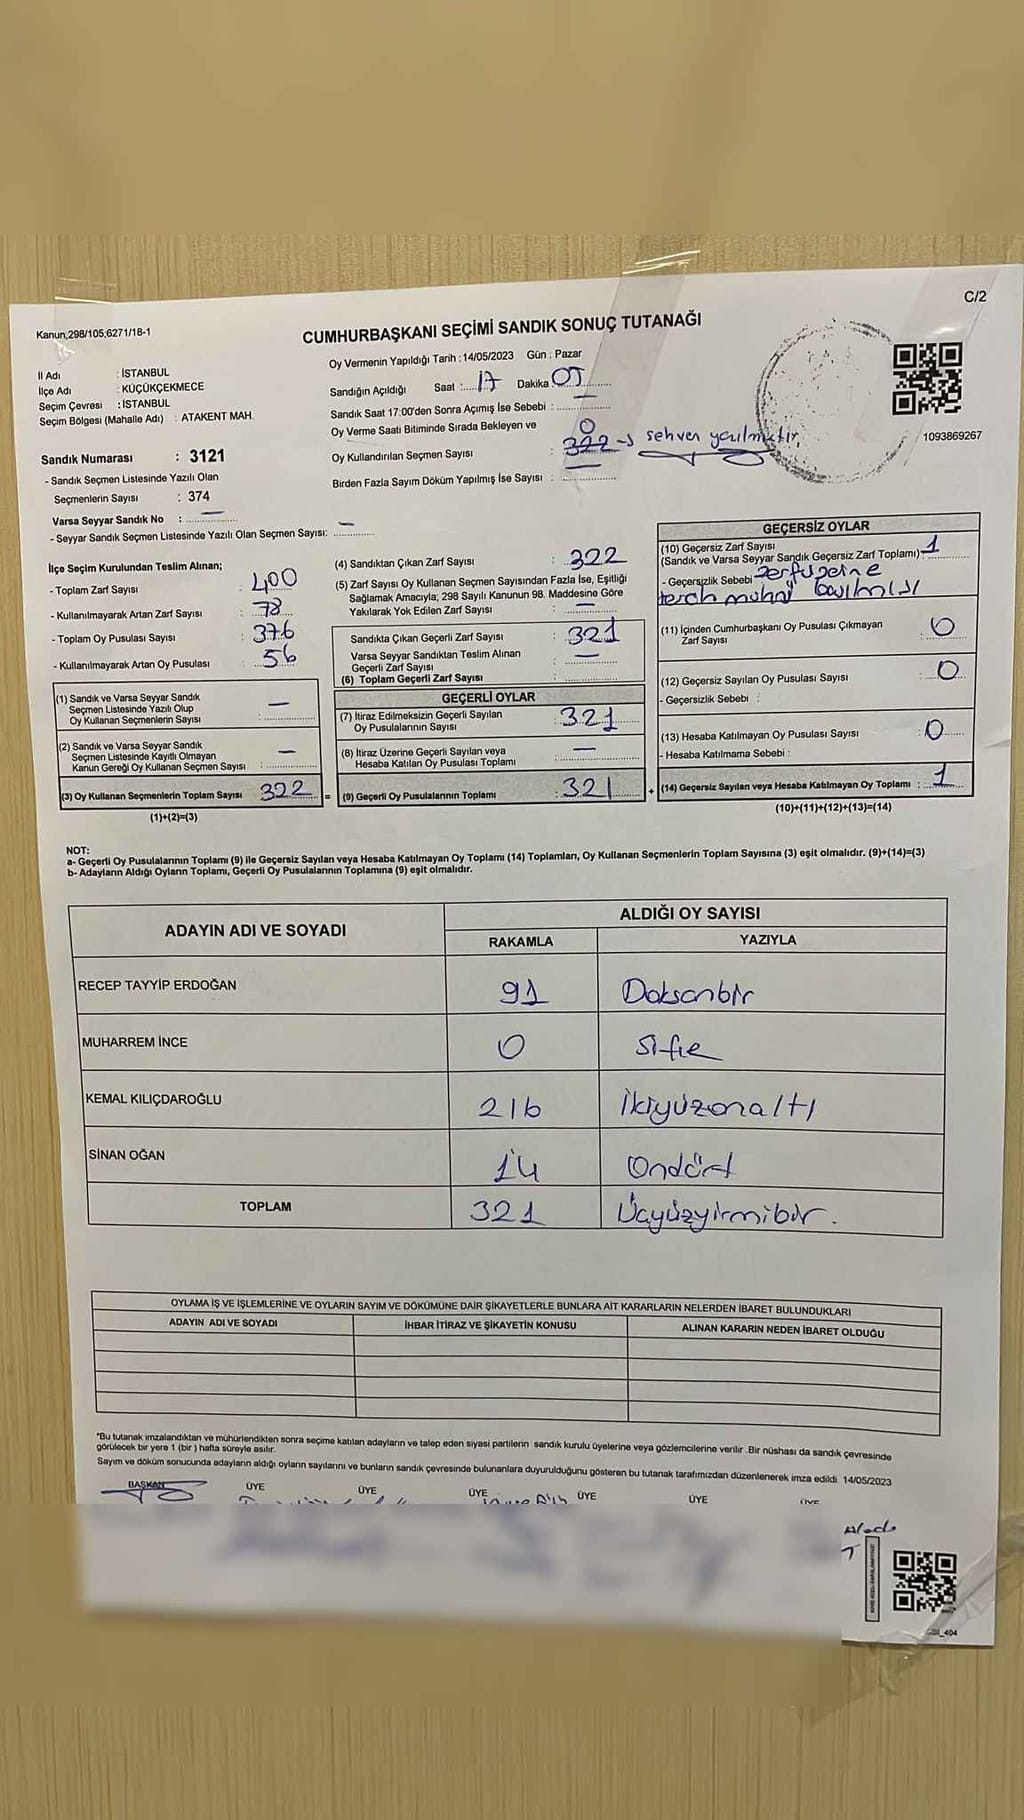 C/2
Kanun;298/105,6271/18-1
CUMHURBAŞKANI SEÇİMİ SANDIK SONUÇ TUTANAĞI
Oy Vermenin Yapıldığı Tarih :14/05/2023 Gün : Pazar
İl Adı : İSTANBUL
İlçe Adı : KÜÇÜKÇEKMECE
Seçim Çevresi : İSTANBUL
Seçim Bölgesi (Mahalle Adı) : ATAKENT MAH.
Sandığın Açıldığı Saat : 17 Dakika: 05
Sandık Saat 17:00'den Sonra Açımış İse Sebebi : —
Oy Verme Saati Bitiminde Sırada Bekleyen ve
Oy Kullandırılan Seçmen Sayısı : 0 322 → sehven yazılmıştır.
Birden Fazla Sayım Döküm Yapılmış İse Sayısı : —
1093869267
Sandık Numarası : 3121
- Sandık Seçmen Listesinde Yazılı Olan
Seçmenlerin Sayısı : 374
Varsa Seyyar Sandık No : —
- Seyyar Sandık Seçmen Listesinde Yazılı Olan Seçmen Sayısı: —
İlçe Seçim Kurulundan Teslim Alınan;
- Toplam Zarf Sayısı : 400
- Kullanılmayarak Artan Zarf Sayısı : 78
- Toplam Oy Pusulası Sayısı : 376
- Kullanılmayarak Artan Oy Pusulası : 56
(1) Sandık ve Varsa Seyyar Sandık
Seçmen Listesinde Yazılı Olup
Oy Kullanan Seçmenlerin Sayısı : —
(2) Sandık ve Varsa Seyyar Sandık
Seçmen Listesinde Kayıtlı Olmayan
Kanun Gereği Oy Kullanan Seçmen Sayısı : —
(3) Oy Kullanan Seçmenlerin Toplam Sayısı 322 =
(1)+(2)=(3)
(4) Sandıktan Çıkan Zarf Sayısı : 322
(5) Zarf Sayısı Oy Kullanan Seçmen Sayısından Fazla İse, Eşitliği
Sağlamak Amacıyla; 298 Sayılı Kanunun 98. Maddesine Göre
Yakılarak Yok Edilen Zarf Sayısı : —
Sandıkta Çıkan Geçerli Zarf Sayısı : 321
Varsa Seyyar Sandıktan Teslim Alınan
Geçerli Zarf Sayısı : —
(6) Toplam Geçerli Zarf Sayısı :
GEÇERLİ OYLAR
(7) İtiraz Edilmeksizin Geçerli Sayılan
Oy Pusulalarının Sayısı : 321
(8) İtiraz Üzerine Geçerli Sayılan veya
Hesaba Katılan Oy Pusulası Toplamı : —
(9) Geçerli Oy Pusulalarının Toplamı : 321 +
GEÇERSİZ OYLAR
(10) Geçersiz Zarf Sayısı
(Sandık ve Varsa Seyyar Sandık Geçersiz Zarf Toplamı) : 1
- Geçersizlik Sebebi zarf üzerine
tercih mührü basılmış
(11) İçinden Cumhurbaşkanı Oy Pusulası Çıkmayan
Zarf Sayısı : 0
(12) Geçersiz Sayılan Oy Pusulası Sayısı : 0
- Geçersizlik Sebebi :
(13) Hesaba Katılmayan Oy Pusulası Sayısı : 0
- Hesaba Katılmama Sebebi :
(14) Geçersiz Sayılan veya Hesaba Katılmayan Oy Toplamı : 1
(10)+(11)+(12)+(13)=(14)
NOT:
a- Geçerli Oy Pusulalarının Toplamı (9) ile Geçersiz Sayılan veya Hesaba Katılmayan Oy Toplamı (14) Toplamları, Oy Kullanan Seçmenlerin Toplam Sayısına (3) eşit olmalıdır. (9)+(14)=(3)
b- Adayların Aldığı Oyların Toplamı, Geçerli Oy Pusulalarının Toplamına (9) eşit olmalıdır.
ADAYIN ADI VE SOYADI
ALDIĞI OY SAYISI
RAKAMLA YAZIYLA
RECEP TAYYİP ERDOĞAN 91 Doksanbir
MUHARREM İNCE 0 Sıfır
KEMAL KILIÇDAROĞLU 216 İkiyüzonaltı
SİNAN OĞAN 14 Ondört
TOPLAM 321 Üçyüzyirmibir.
OYLAMA İŞ VE İŞLEMLERİNE VE OYLARIN SAYIM VE DÖKÜMÜNE DAİR ŞİKAYETLERLE BUNLARA AİT KARARLARIN NELERDEN İBARET BULUNDUKLARI
ADAYIN ADI VE SOYADI İHBAR İTİRAZ VE ŞİKAYETİN KONUSU ALINAN KARARIN NEDEN İBARET OLDUĞU
*Bu tutanak imzalandıktan ve mühürlendikten sonra seçime katılan adayların ve talep eden siyasi partilerin sandık kurulu üyelerine veya gözlemcilerine verilir. Bir nüshası da sandık çevresinde
görülecek bir yere 1 (bir ) hafta süreyle asılır.
Sayım ve döküm sonucunda adayların aldığı oyların sayılarını ve bunların sandık çevresinde bulunanlara duyurulduğunu gösteren bu tutanak tarafımızdan düzenlenerek imza edildi. 14/05/2023
BAŞKAN ÜYE ÜYE ÜYE ÜYE ÜYE ÜYE